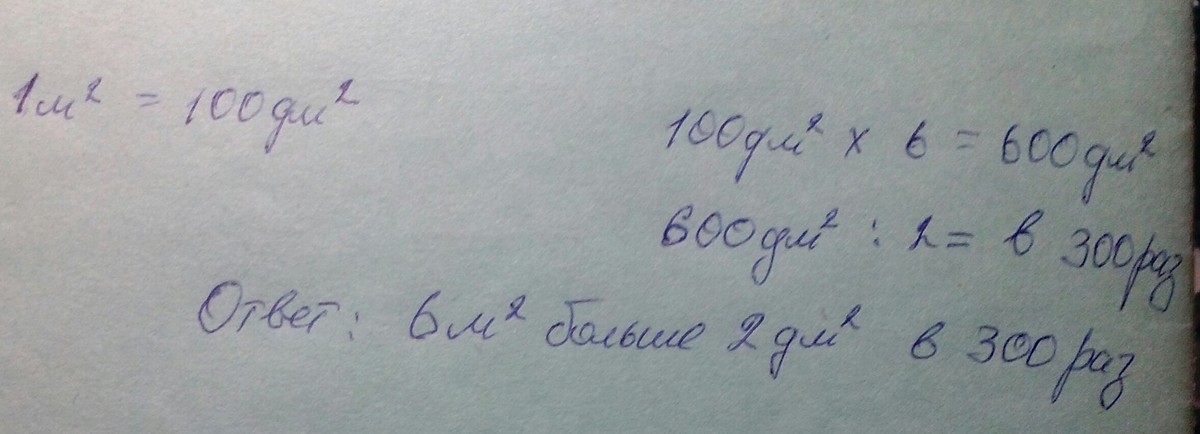 1м² = 100дм²
100дм² x 6 = 600дм²
600дм² : 2 = в 300раз
Ответ: 6м² больше 2дм² в 300раз